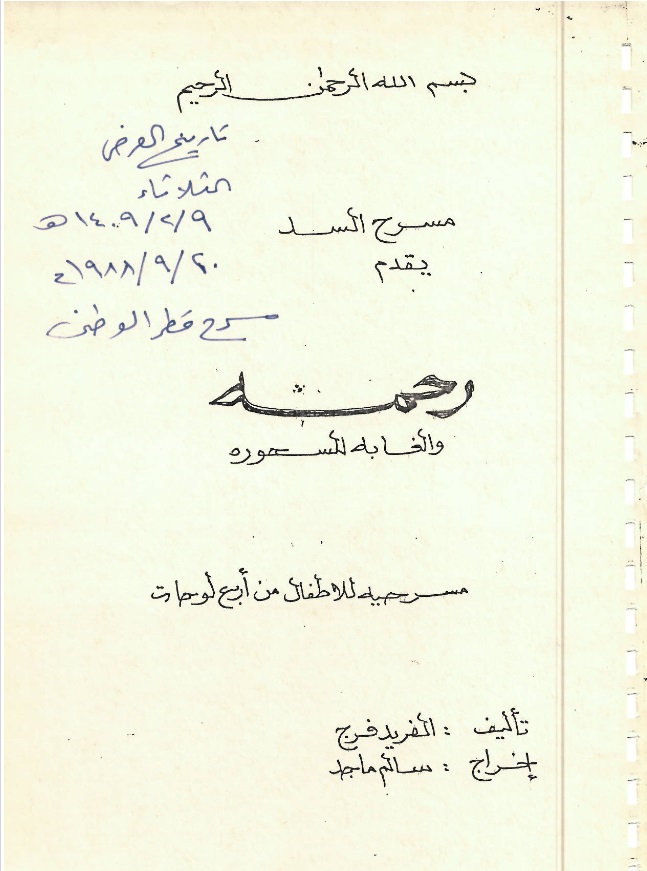 بسم الله الرحمن الرحيم
تاريخ العرض
الثلاثاء
١٤٠٩/٢/٩هـ
١٩٨٨/٩/٢٠م
مسرح قطر الوطني
مسرح السد
يقدم
رحمة
والغابه المسحوره
مسرحيه للاطفال من أربع لوحات
تأليف : الفريد فرج
إخراج : سالم ماجد